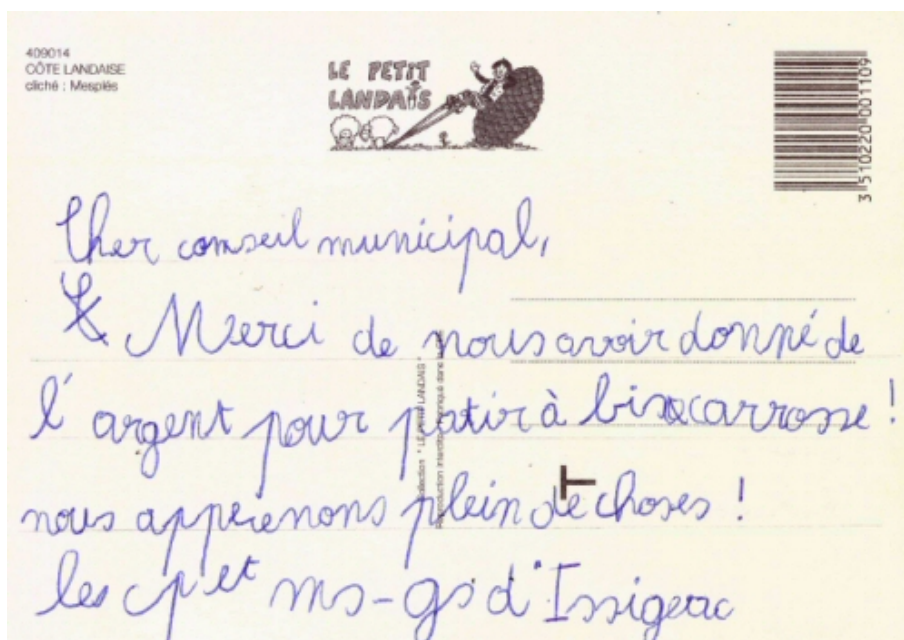 409014
CÔTE LANDAISE
cliché : Mesplès
LE PETIT
LANDAIS
3 510220 001109
Cher conseil municipal,
Merci de nous avoir donné de
l'argent pour patir à biscarrosse !
nous apprenons plein de choses !
les cp et ms-gs d'Issigeac
Collection " LE PETIT LANDAIS "
Reproduction interdite